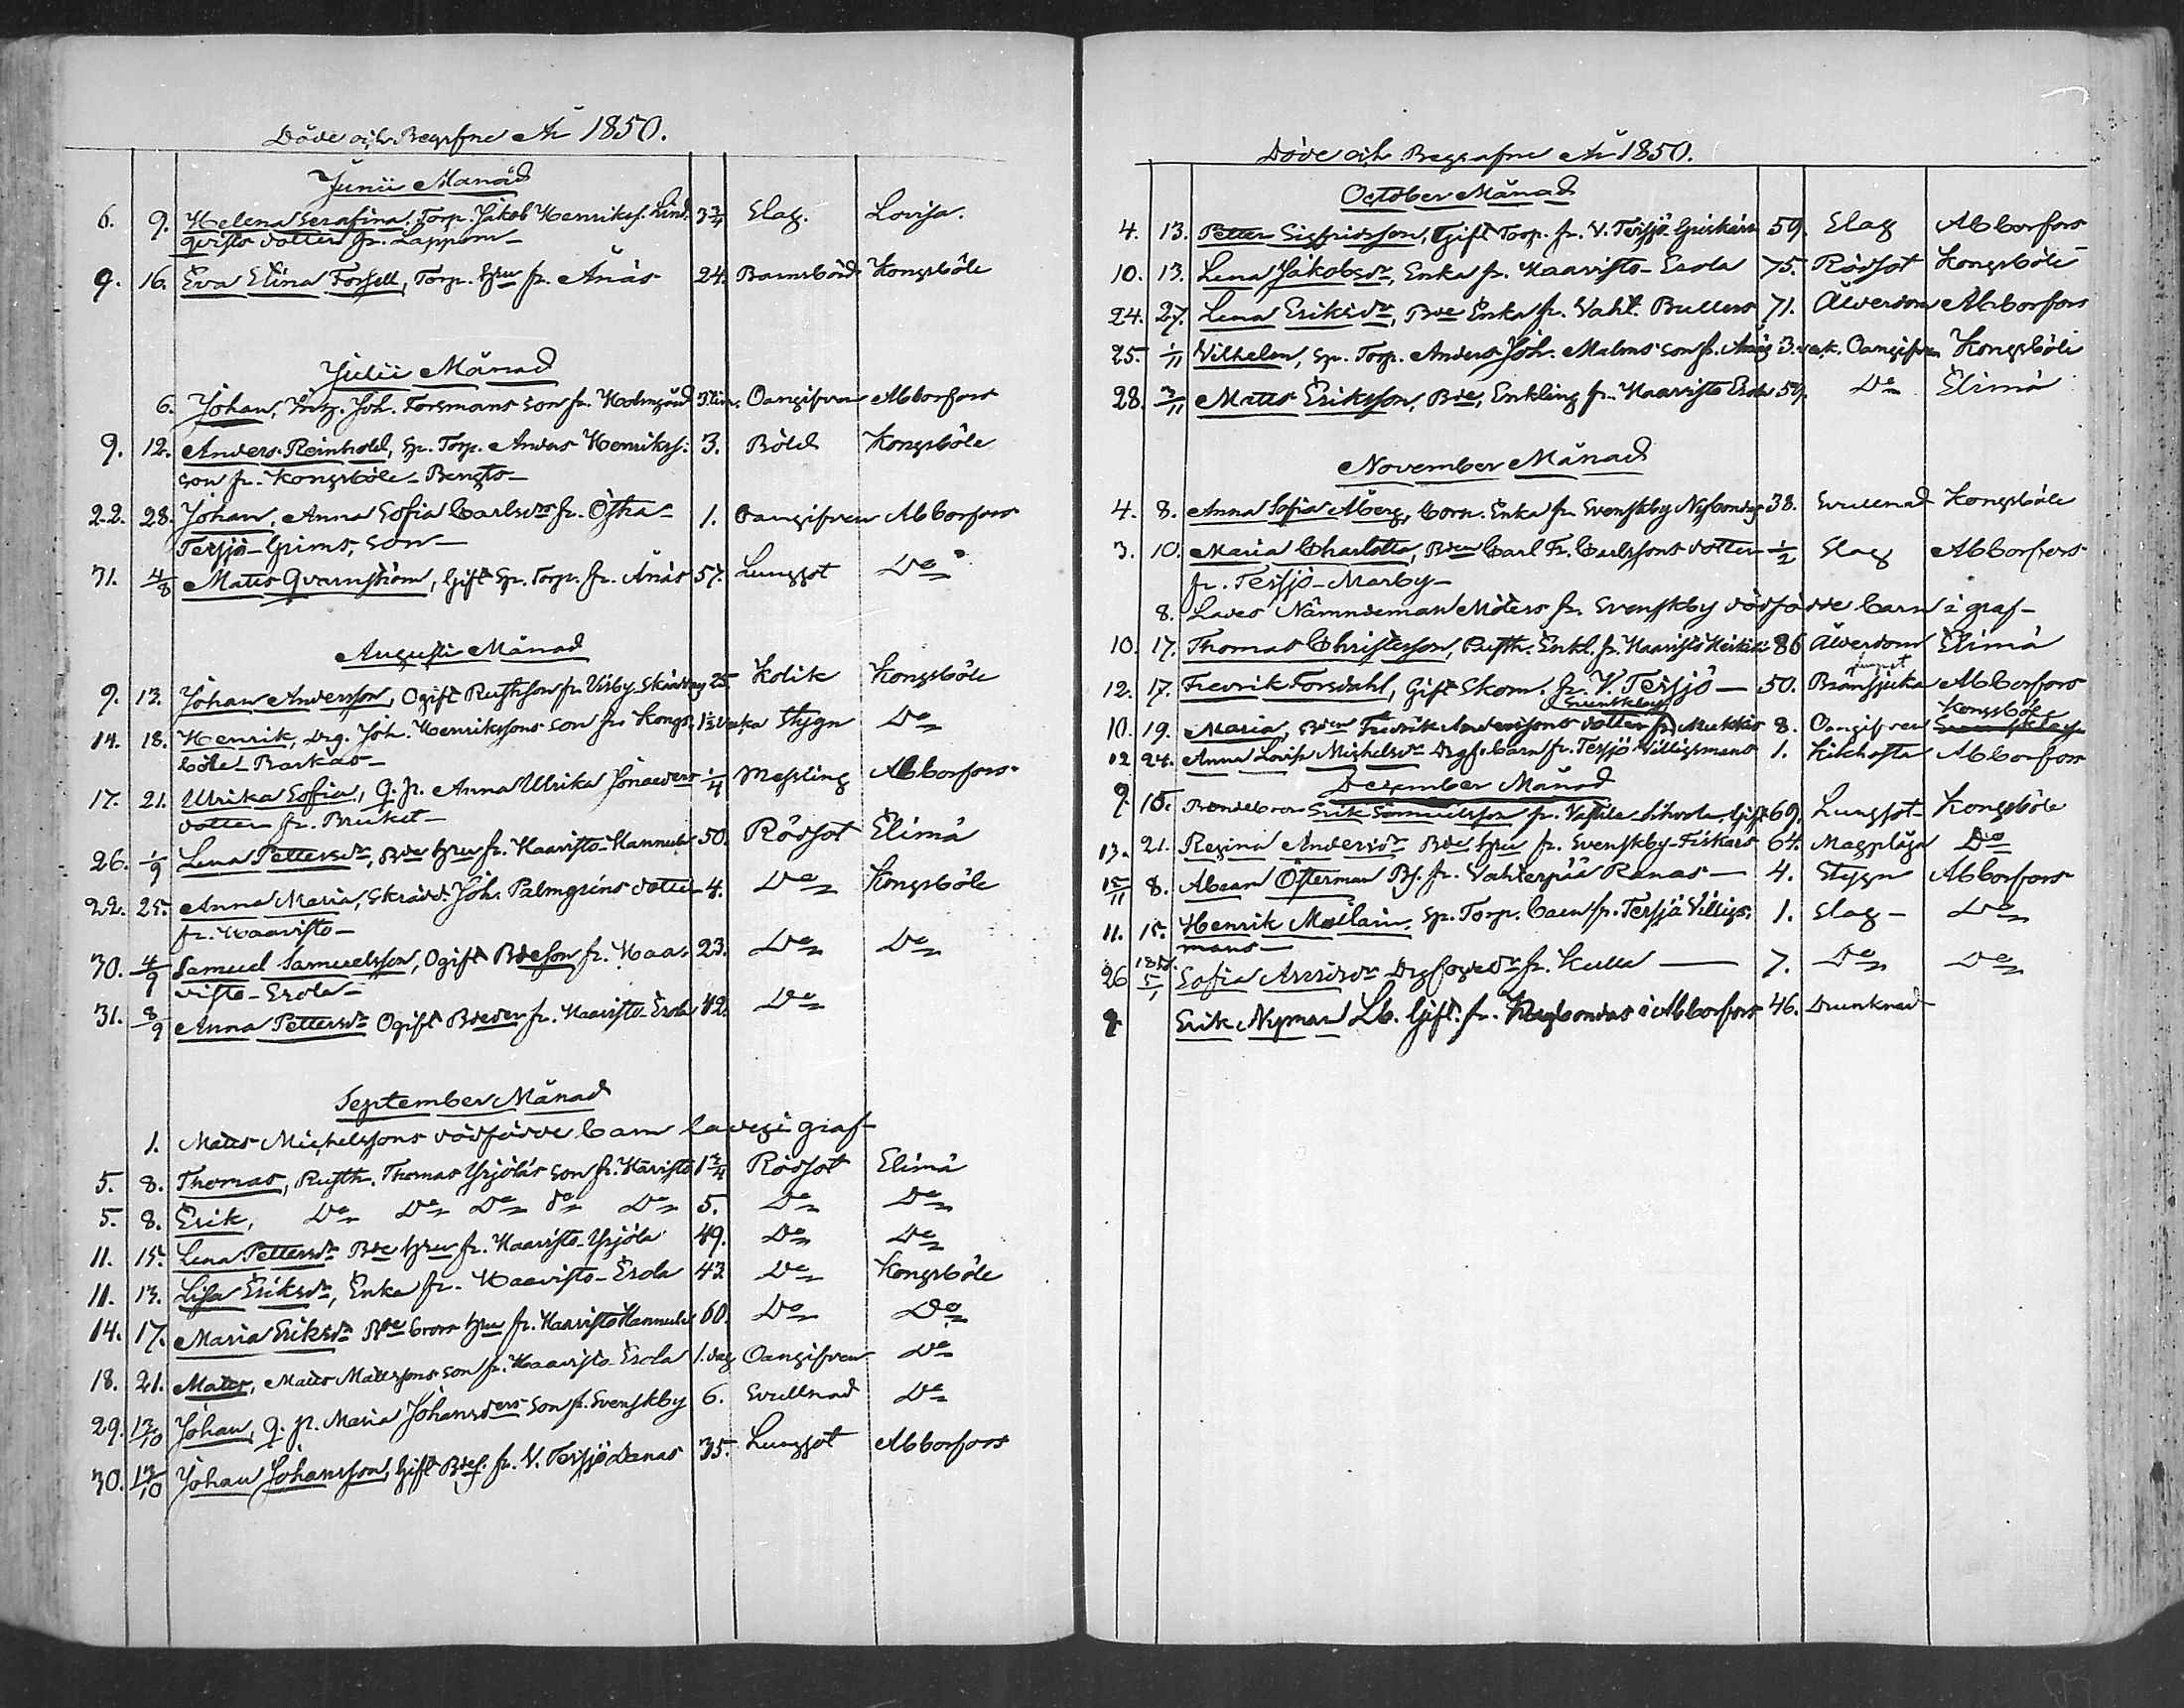 Döde och Begrafne År 1850.
Junii Månad
6. 9. Helena Serafina, Torp. Jakob Henrikss. Lind- 3 3/4 Slag. Lovisa.
qvists dotter fr. Lappom
9. 16. Eva Elina Forsell, Torp. hru fr. Anäs 24. Barnsbörd Kongsböle
Julii Månad
6. Johan, Joh. Forsmans son fr. Holmgård 3 tim. Oangifven Abborfors
9. 12. Anders Reinhold, Sp. Torp. Anders Henrikss: 3. Böld Kongsböle
son fr. Kongsböle-Bengts-
22. 28. Johan, Anna Sofia Carlsdrs fr. Östra- 1. Oangifven Abborfors
Tessjö-Grims, son-
31. 4/8 Matts Qvarnström, Gift Sp. Torp. fr. Anäs 57. Lungsot Do
Augusti Månad
9. 13. Johan Andersson, Ogift Rusthson fr. 25. Kolik Kongsböle
14. 18. Henrik, Drg. Joh. Henrikssons son fr. Kongs- 1 1/2 vecka Stygn Do
böle-Barkas-
17. 21. Ulrika Sofia, Q. p. Anna Ulrika Jonaeders 1/4 Messling Abborfors
dotter fr. Bruket-
26. 1/9 Lena Pettersdr, Bde hru fr. Haavisto-Hannula 50. Rödsot Elimä
22. 25. Anna Maria, Skrädd. Joh. Palmgréns dotter 4. Do Kongsböle
fr. Haavisto-
30. 4/9 Samuel Samuelsson, Ogift Bdeson fr. Haa- 23. Do Do
visto-Erola-
31. 8/9 Anna Pettersdr Ogift fr. Haavisto-Erola 42. Do
September Månad
1. Matts Michelssons dödfödde barn lades i graf-
5. 8. Thomas, Rusth. Thomas Yrjöläs son fr. Havisto 1 3/4 Rödsot Elimä
5. 8. Erik, Do Do Do do Do 5. Do Do
11. 15. Lena Pettersdr Bde hru fr. Haavisto-Yrjölä 49. Do Do
11. 13. Lisa Eriksdr, Enka fr. Haavisto-Erola 43. Do Kongsböle
14. 17. Maria Eriksdr Bde hru fr. Haavisto Hannula 60. Do Do
18. 21. Matts, Matts Mattssons son fr. Haavisto-Erola 1. dag Oangifven Do
29. 13/10 Johan, Q. p. Maria Johansders son fr. Svenskby 6. Svullnad Do
30. 13/10 Johan Johansson, Gift Bdes. fr. V. Tessjö Danas 35. Lungsot Abborfors
Döde och Begrafne År 1850.
October Månad
4. 13. Petter Sigfridsson, Gift Torp. fr. V. Tessjö 59. Slag Abborfors
10. 13. Lena Jakobsdr, Enka fr. Haavisto-Erola 75. Rödsot Kongsböle
24. 27. Lena Eriksdr, Bde Enka fr. Vaht. Bullers 71. Ålderdom Abborfors
25. 1/11 Vilhelm, Sp. Torp. Anders Joh. Malms son fr. Anäs 3. veck. Oangifven Kongsböle
28. 3/11 Matts Eriksson, Bde, Enkling fr. Haavisto Erola 59. Do Elimä
November Månad
4. 8. Anna Sofia Åberg, Enka fr. Svenskby Nybondas 38. Svullnad Kongsböle
3. 10. Maria Charlotta, Bden Carl Fr. Carlssons dotter 1/2 Slag Abborfors
fr. Tessjö-Marby-
8. Lades Nämndeman Möllers fr. Svenskby dödfödde barn i graf-
10. 17. Thomas Christersson, Rusth. Enkl. fr. Haavisto 86 Ålderdom Elimä
12. 17. Fredrik Forsdahl, Gift Skom. fr. V. Tessjö — 50. Brännsjuka Abborfors
Svenskby
10. 19. Maria, Bden Fredrik Anderssons dotter fr. Mukkas 8. Oangifven Kongsböle
12 24. Anna Lovisa Michelsdr Drgs. barn fr. Tessjö Villigsmans 1. Kikhosta Abborfors
December Månad
9. 15. Bonde Erik Samuelsson fr. Gift 69. Lungsot Kongsböle
13. 21. Regina Andersdr Bde hru fr. Svenskby-Fiskars 64. Magplåga Do
15/11 8. Österman Bs. fr. Vahterpää Ranas — 4. Stygn Abborfors
11. 15. Henrik Sp. Torp. barn fr. Tessjö Villigs- 1. Slag Do
mans —
26 1851 5/1 Sofia fr. Kulla — 7. Do Do
Erik Nyman Lb. Gift. fr. i Abborfors 46. Drunknad